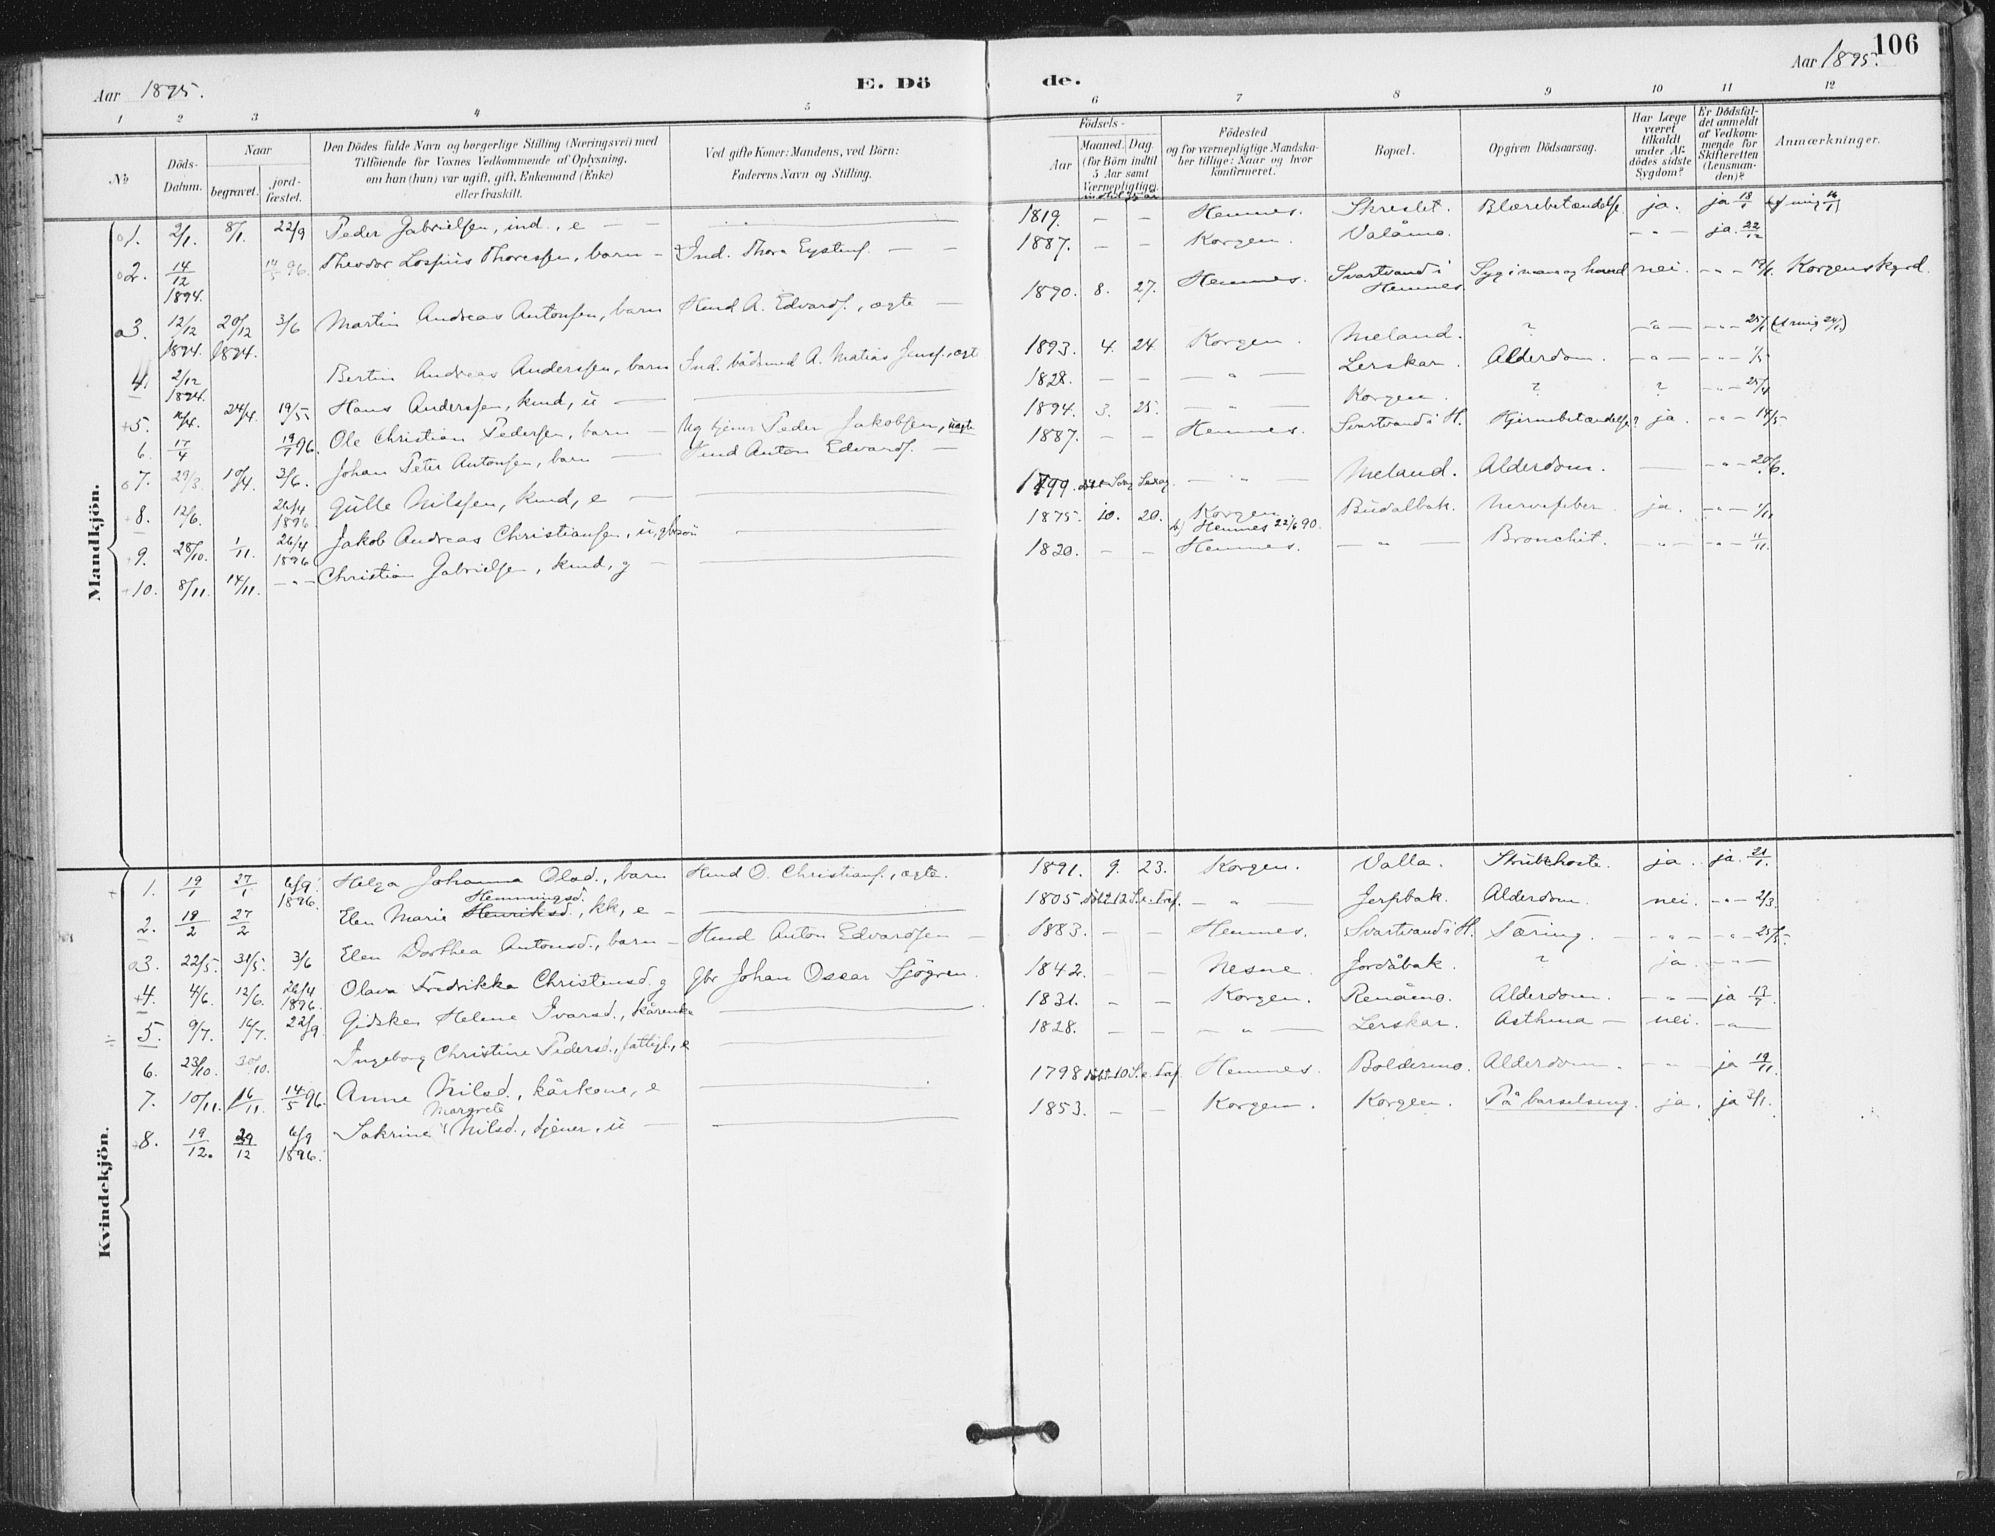 106
Aar 1895.
E. Dö
de.
Aar 1895.
1 2 3 4 5 6 7 8 9 10 11 12
No
Döds-Datum.
Naar
begravet.
jord-fæstet.
Den Dödes fulde Navn og borgerlige Stilling (Næringsvei) med
Tilföiende for Voxnes Vedkommende af Oplysning,
om han (hun) var ugift, gift, Enkemand (Enke)
eller fraskilt.
Ved gifte Koner: Mandens, ved Börn:
Faderens Navn og Stilling.
Födsels-
Aar
Maaned. Dag
(for Börn indtil
5 Aar samt
Værnepligtige)
Födested
og for værnepligtige Mandska-
ber tillige: Naar og hvor
konfirmeret.
Bopæl.
Opgiven Dödsaarsag.
Har Læge
været
tilkaldt
under Af-
dödes sidste
Sygdom?
Er Dödsfal-
det anmeldt
af Vedkom-
mende for
Skifteretten
(Lensman-
den)?
Anmærkninger.
Mandkjön.
1. 2/1. 8/1. 22/9 Peder Gabrielsen, ind., e — 1819. — — Hemnes. Skreslet. Blærebetændelse ja. ja 18/1
2. 14/12 1894. 14/5 96. Theodor Thoresen, barn — Ind. Thore Eystens. — — 1887. — — Korgen. Valåmo. — " — ja. 22/12
3. 12/12 1894. 20/12 1894. 3/6 Martin Andreas Antonsen, barn Kmd A. Edvards., ægte — 1890. 8. 27. Hemnes. Svartvand i Hemnes. Syg i mave og hoved nei. — " — Korgens kgrd.
4. 2/12 1894. Bertin Andreas Andersen, barn Ind. A. Matias Jens., ægte 1893. 4. 24. Korgen. Meland. ? — " —
5. 16/4. 24/4. 19/5 Hans Andersen, kmd, u — 1828. — — — " — Lerskar. Alderdom. — " —
6. 17/4 19/7 96. Ole Christian Pedersen, barn — Ug tjener Peder Jakobsen, uægte 1894. 3. 25. — " — Korgen. ? ? — " — 25/4
7. 29/3 10/4. 3/6. Johan Peter Antonsen, barn — Kmd Anton Edvards. — 1887. — — Hemnes. Svartvand i H. Hjernebetændelse? ja. — " — 14/5
8. 12/6. 26/4 1896 Gulle Nilsen, kmd, e — 1799. — " — Meland. Alderdom. — — " — 20/6.
9. 28/10. 1/11. 26/4 1896 Jakob Andreas Christiansen, u, gbrsön 1875. 10. 20. Korgen. Hemnes 22/6 90. Budalbak. Nervefeber. ja. — " — 1/11
10. 8/11. 14/11. — " — Christian Gabrielsen, kmd, g — 1820. — — Hemnes. — " — Bronchit. — " — — " — 11/11.
Kvindekjön.
1. 19/1 27/1 6/9 1896. Helga Johanna Olsd., barn Kmd O. Christians., ægte. 1891. 9. 23. Korgen. Valla. Strubehoste. ja. ja. 21/1
2. 18/2 27/2 Elen Marie Henriksd. Hemmingsd., kk, e — 1805 — " — Jerpbak. Alderdom. nei. — " — 2/3.
3. 22/5. 31/5. 3/6 Elen Dorthea Antonsd., barn — Kmd Anton Edvardsen — 1883. — — Hemnes. Svartvand i H. Tæring. — " — — " — 25/5
4. 4/6. 12/6. 26/4 1896. Olava Fredrikka Christensd. g gbr Johan Oscar Sjögren. 1842. — — Nesne. Jordåbak. ? ja. — " —
5. 9/7. 16/7. 22/9. Gidsken Helene Ivarsd., kårenke 1831. — — Korgen. Renåmo. Alderdom. — " — ja 13/7.
6. 23/10. 30/10. Ingeborg Christine Pedersd., fattigl., e 1828. — — — " — Lerskar. Asthma — nei. — " —
7. 10/11. 16/11. 14/5 96. Anne Nilsd., kårkone, e 1798 Hemnes. Bolderemo. Alderdom. — " — ja 19/11.
8. 19/12. 29/12 6/9 1896. Sakrine Margrete Nilsd., tjener, u — 1853. — — Korgen. Korgen. På barselseng. ja. ja 2/1.